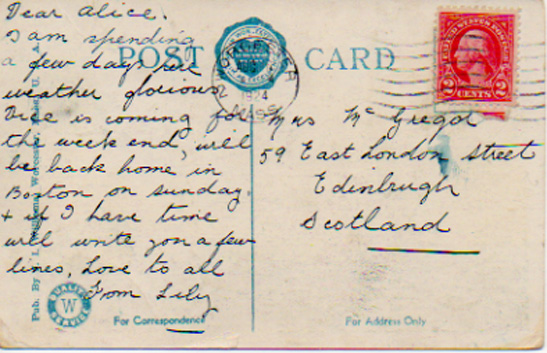 Dear Alice.
I am spending
a few days
weather glorious
is coming for
the week end, will
be back home in
Boston on sunday.
& if I have time
will write you a few
lines, Love to all
From Lily
POST CARD
1924
MASS
UNITED STATES POSTAGE
2 CENTS 2
Mrs Mc Gregor
59 East London street
Edinbrugh
Scotland
Pub. By
QUALITY
W
SERVICE
For Correspondence
For Address Only